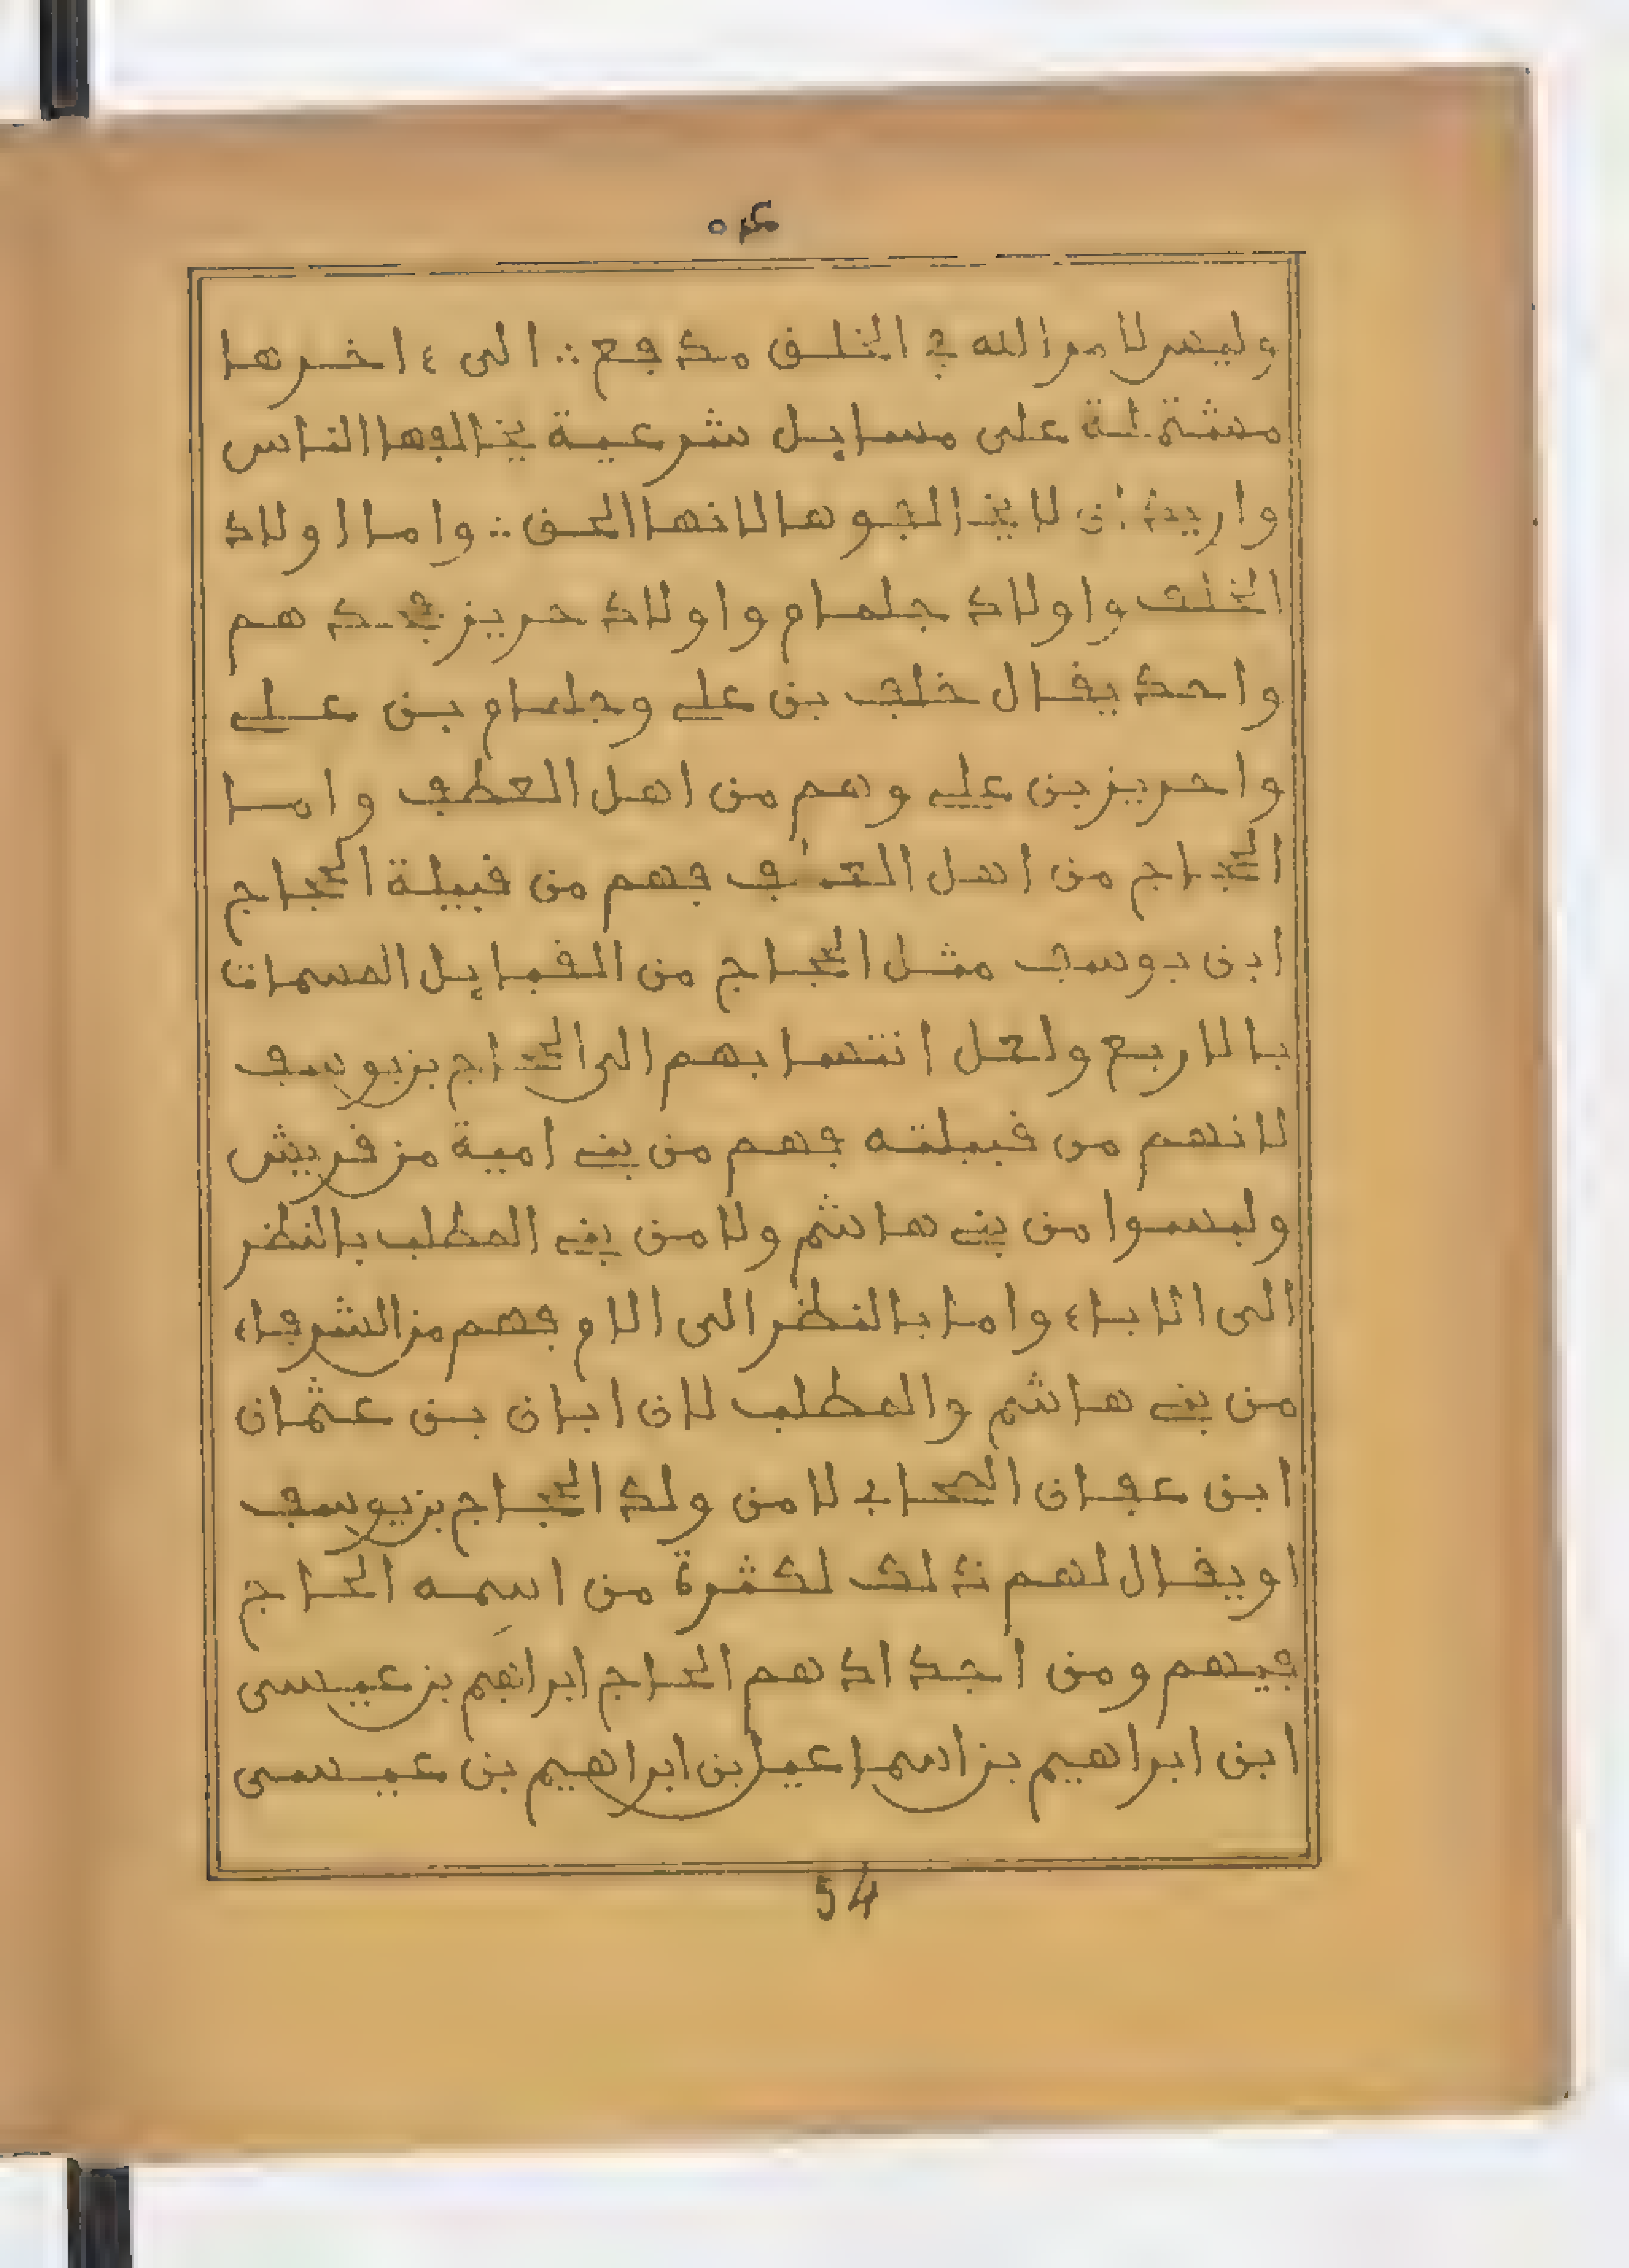 وليس لامر الله في الخلق مدفع ∴ الى ءاخرها
مشتملة على مسايل شرعية يخالفها الناس
واريد ان لا يخالفوها لانها الحق ∴ واما اولاد
الخلف واولاد جلمام واولاد حريز فجد هم
واحد يقال خلف بن علي وجلمام بن علي
واحريز بن علي وهم من اهل العطف واما
الحجاج من اهل العطف فهم من قبيلة الحجاج
ابن يوسف مثل الحجاج من القبايل المسمات
بالاربع ولعل انتسابهم الى الحجاج بن يوسف
لانهم من قبيلته فهم من بني امية من قريش
وليسوا من بني هاشم ولا من بني المطلب بالنظر
الى الاباء واما بالنظر الى الام فهم من الشرفاء
من بني هاشم والمطلب لان ابان بن عثمان
ابن عفان الصحابي لا من ولد الحجاج بن يوسف
او يقال لهم ذلك لكثرة من اسمه الحاج
فيهم ومن اجدادهم الحاج ابراهيم بن عيسى
ابن ابراهيم بن اسماعيل بن ابراهيم بن عيسى
54